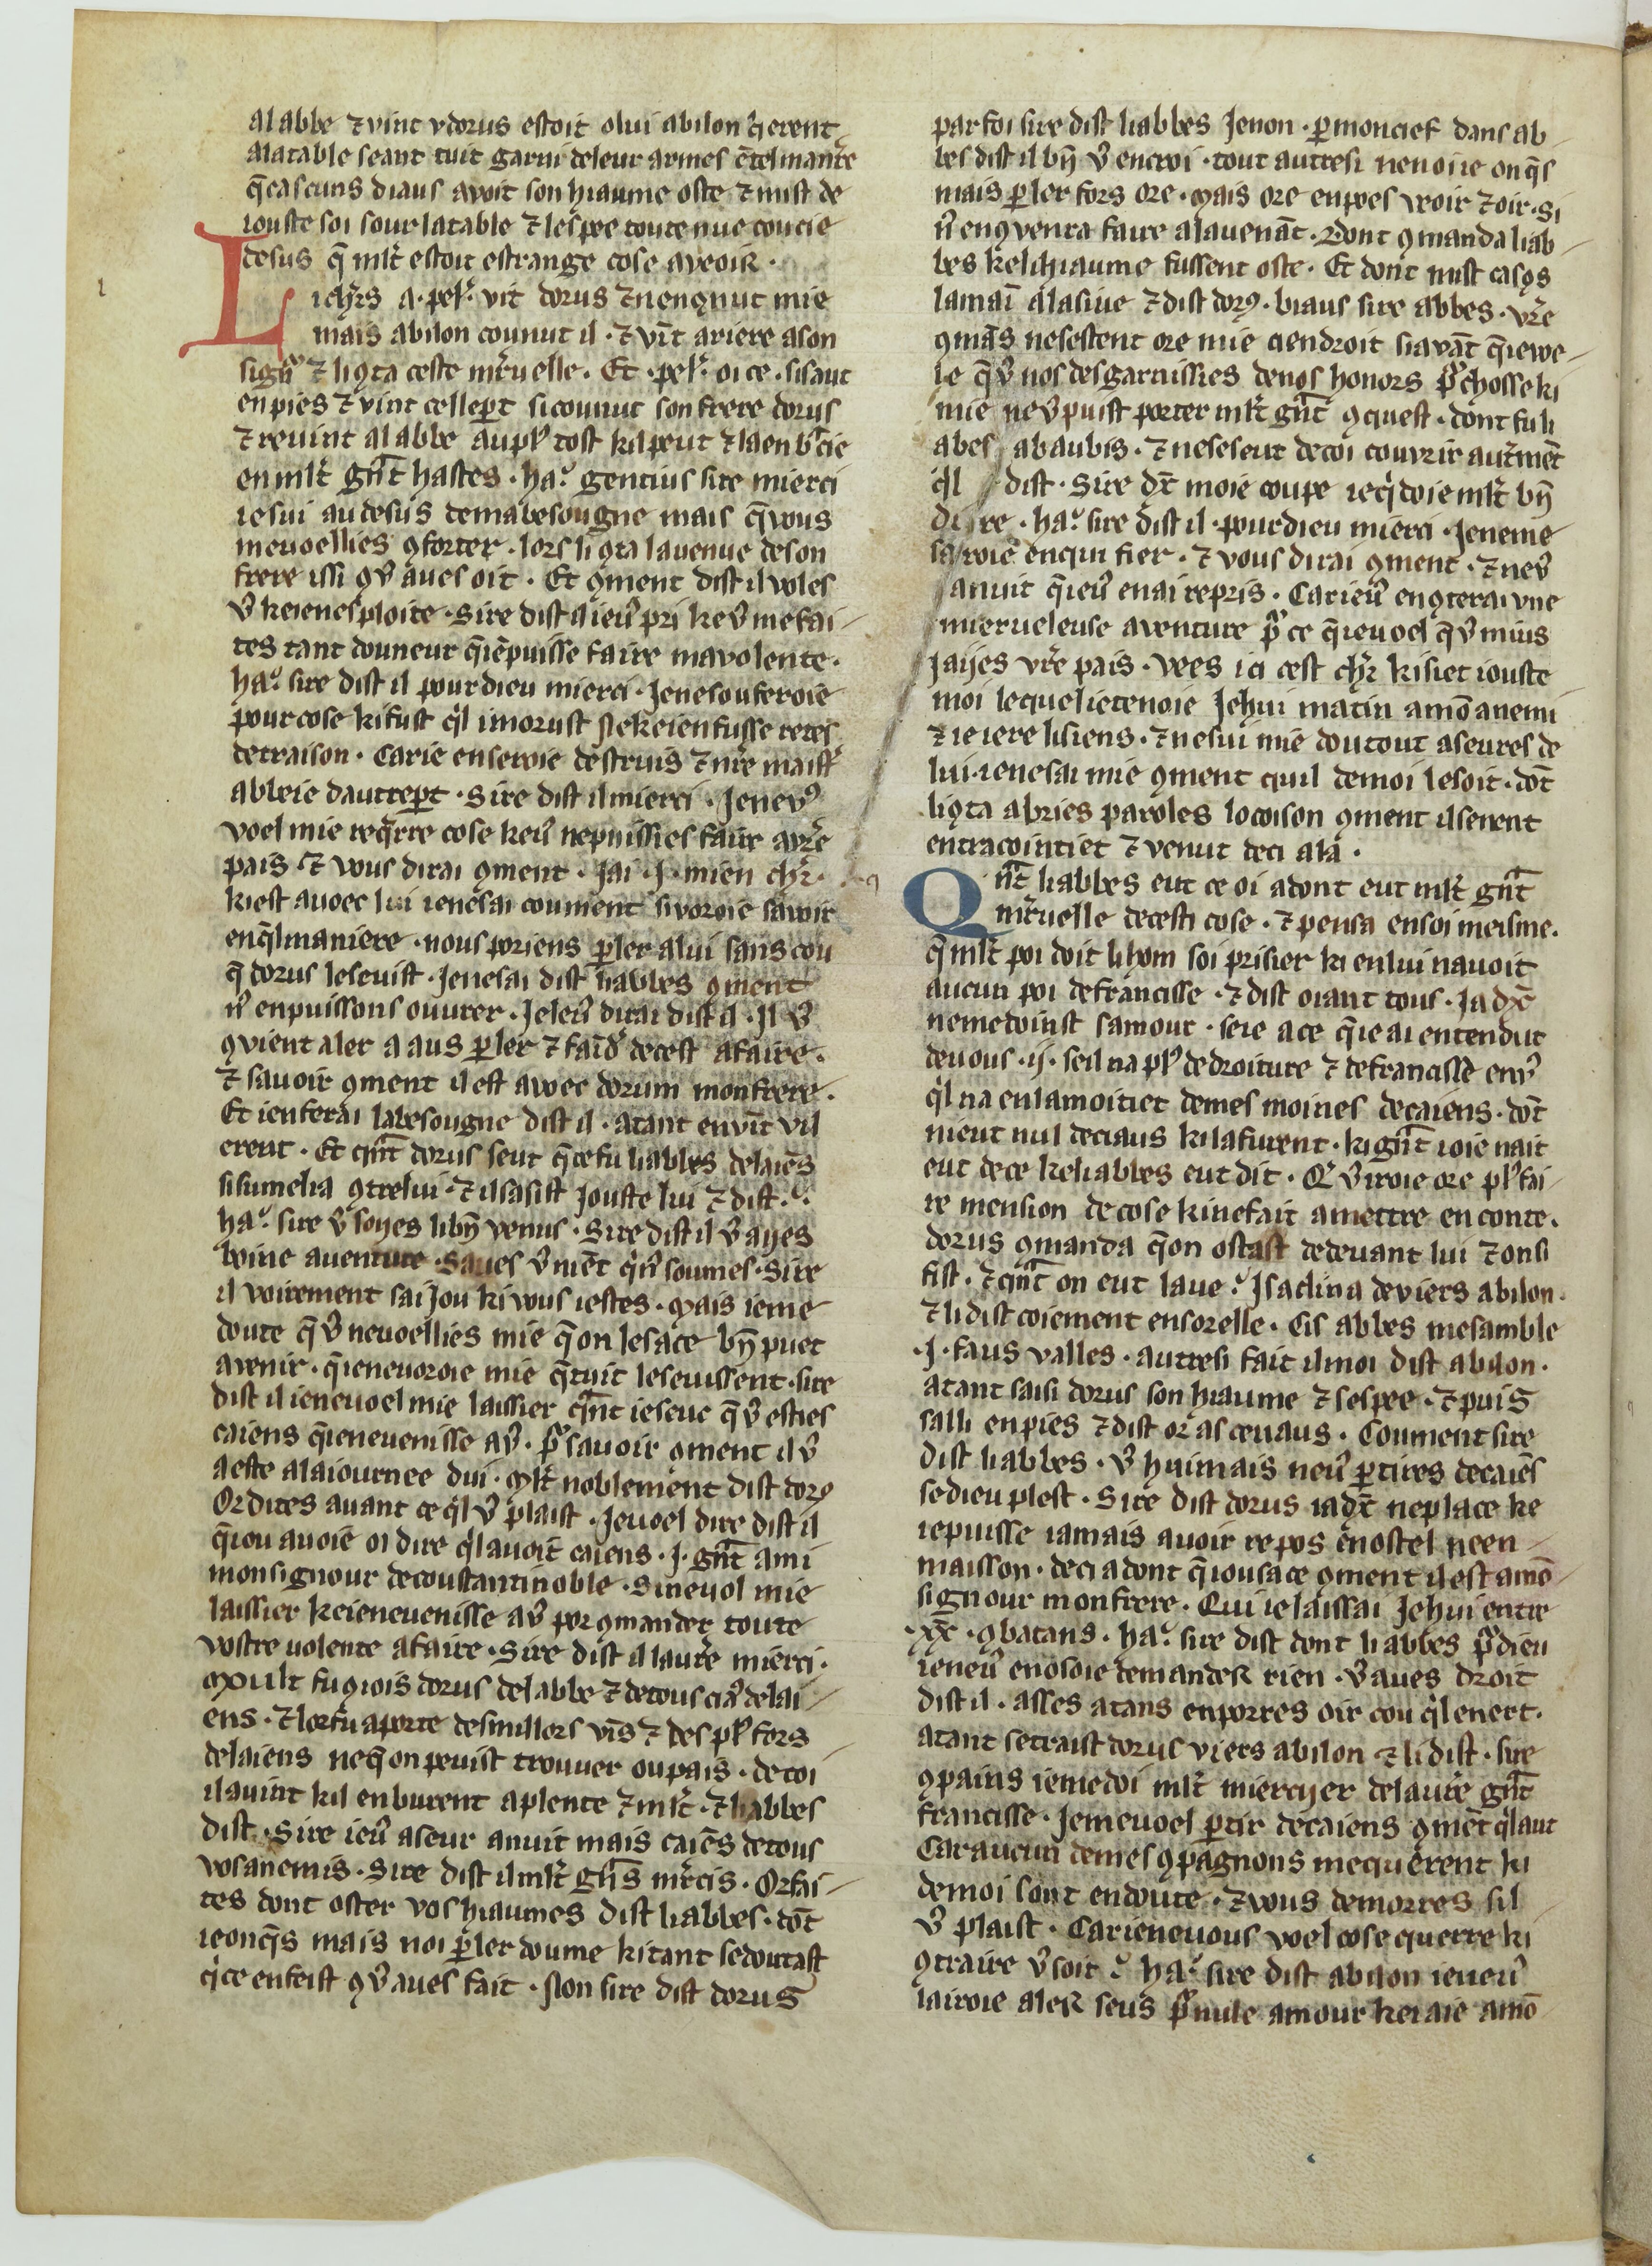 al abbe ⁊ vint v dorus estoit o lui abilon q̄ erent
a la table seant tuit garni de leur armes ētel manr̄e
q̄ cascuns diaus avoit son hiaume oste ⁊ mist de
iouste soi sour la table ⁊ lespee toute nue coucie
desus q̄ ml̄t estoit estrange cose a veoir ·
Li chl̄rs a · pel̄ · vit dorus ⁊ nen ꝯnut mie
mais abilon counut il · ⁊ vīt ariere a son
sign̄ ⁊ li ꝯta ceste mr̄uelle · Et · pel̄ · oi ce · si saut
en pies ⁊ vint celle pt̄ si counut son frere dorus
⁊ revint al abbe au pl9 tost kil peut ⁊ la en br̄cie
en ml̄t gnt̄ hastes · ha · gentius sire mierci
ie sui au desus de ma besougne mais q̄ vous
me voellies ꝯforter · lors li ꝯta la venue de son
frere issi ꝯ v̄ aues oit · Et ꝯment dist il voles
v̄ ke ien esploite · Sire dist il ie v̄ pri ke v̄ me fai-
tes tant douneur q̄ iē puisse faire ma volente ·
ha · sire dist il pour dieu mierci · Je ne souferoie
pour cose ki fust ql̄ i morust ne ke ien fusse retes
de traison · Car ie en seroie destruis ⁊ nr̄e maist̄
abbeie dautre pt̄ · Sire dist il mierci · Je ne v9
voel mie reqr̄re cose ke v̄ ne puissies faire a vr̄e
pais ⁊ vous dirai ꝯment · Jai · J · mien chl̄r ·
ki est avoec lui ie ne sai coument si voroie savoir
en ql̄ maniere · nous poriens pl̄er a lui sans cou
q̄ dorus le seuist · Je ne sai dist li abbes ꝯment
n̄ en puissons ouurer · Je le v̄ dirai dist il · Jl v̄
ꝯvient aler a aus pl̄er ⁊ faīdr̄ de cest afaire ·
⁊ savoir ꝯment il est avoec dorum mon frere ·
Et ien ferai la besougne dist il · atant en vīt v il
erent · Et qnt̄ dorus seut q̄ ce fu li abbes de laiēs
si sumelia ꝯtre lui · ⁊ il sasist Jouste lui ⁊ dist ·
ha · sire v̄ soyes li bn̄ venus · Sire dist il v̄ ayes
boine aventure · Saues v̄ niēt qi n̄ soumes · Sire
il voirement sai Jou ki vous iestes · Mais ie me
doute q̄ v̄ ne voellies mie q̄ on le sace bn̄ puet
avenir · q̄ ie ne voroie mie q̄ tuit le seuissent · sire
dist il ie ne voel mie laissier qnt̄ ie seuc q̄ v̄ esties
caiens q̄ ie ne venisse a v̄ · pr̄ savoir ꝯment il v̄
a este a la iournee dui · Ml̄t noblement dist dor9
Or dites avant ce ql̄ v̄ plaist · Je voel dire dist il
q̄ iou avoie oi dire ql̄ avoit caiens · J · gnt̄ ami
mon signour de coustantinoble · Si ne vol mie
laissier ke ie ne venisse a v̄ por ꝯmander toute
vostre volente a faire · Sire dist il la vr̄e mierci ·
Mult fu ꝯiois dorus del abbe ⁊ de tous ciax̄ de lai-
ens · ⁊ lor fu aporte des millors vīs ⁊ des pl9 fors
de laiens ne q̄ on peuist trouver ou pais · de coi
il avint kil en burent a plente ⁊ ml̄t · ⁊ li abbes
dist · Sire ie v̄ aseur anuit mais caiēs de tous
vos anemis · Sire dist il ml̄t gn̄s mr̄cis · Or fai-
tes dont oster vos hiaumes dist li abbes · dōt
ie onq̄s mais n oi pl̄er doume ki tant se doutast
qi ce en feist ꝯ v̄ aues fait · Non sire dist dorus
par foi sire dist li abbes Je non · p̄ mon cief dans ab-
bes dist il bn̄ v̄ en croi · tout autresi n en oiie onq̄s
mais pl̄er fors ore · Mais ore en poes veoir ⁊ oir · Si
n̄ en ꝯvenra faire a lavenāt · Dont ꝯmanda li ab-
bes ke li hiaume fussent oste · Et dont mist casq9
la maī a la siue ⁊ dist dor9 · biaus sire abbes · vr̄e
ꝯmās ne sestent ore mie ci endroit si avāt q̄ ie voe-
le q̄ v̄ nos desgarnissies de nos honors pr̄ chosse ki
mie ne v̄ puist porter ml̄t gnt̄ ꝯquest · dont fu li
abes abaubis · ⁊ ne se seut de coi couvrir autr̄mēt
ql̄ dist · Sire dx̄ moie coupe ie qi doie ml̄t bn̄
dire · ha · sire dist il · pour dieu mierci · Je ne me
saroie en qui fier · ⁊ vous dirai ꝯment · ⁊ ne v̄
anuit q̄ ie v̄ en ai repris · Car ie v̄ en ꝯterai vne
mierveleuse aventure pr̄ ce q̄ ie voel q̄ v̄ mius
Jaijes vr̄e pais · Vees ici cest chl̄r ki siet iouste
moi lequel ie tenoie Jehui matin a mō anemi
⁊ ie iere li siens · ⁊ ne sui mie dou tout aseures de
lui · ie ne sai mie ꝯment quil de moi le soit · dōt
li ꝯta a bries paroles locoison ꝯment il serent
entracointiet ⁊ venut deci a la ·
Qnt̄ li abbes eut ce oi adont eut ml̄t gnt̄
mr̄uelle de cesti cose · ⁊ pensa en soi meisme ·
q̄ ml̄t poi doit li hom soi prisier ki en lui n avoit
aucun poi de francisse · ⁊ dist oiant tous · Ja dx̄
ne me doinst samour · se ie a ce q̄ ie ai entendut
de vous · ij · se il na pl9 de droiture ⁊ de francisse en v9
ql̄ na en la moitiet de mes moines de caiens · dōt
nieut nul de ciaus ki la furent · ki gnt̄ ioie nait
eut de ce ke li abbes eut dit · Q v̄ iroie ore pl9 fai-
re mension de cose ki ne fait a mettre en conte ·
dorus ꝯmanda q̄ on ostast de devant lui ⁊ on si
fist · ⁊ qnt̄ on eut lave · Jl saclina deviers abilon ·
⁊ li dist coiement en sorelle · Cis abbes mesamble
· J · faus valles · autresi fait il moi dist abilon ·
atant saisi dorus son hiaume ⁊ sespee · ⁊ puis
salli en pies ⁊ dist or as cevaus · Coument sire
dist li abbes · v̄ huimais ne v̄ ptires de caiēs
se dieu plest · Sire dist dorus ia dx̄ ne place ke
ie puisse iamais avoir repos en ostel ne en
maisson · deci adont q̄ iou sace ꝯment il est a mō
signour mon frere · Cui ie laissai Jehui entre
· xx̄ · ꝯbatans · ha · sire dist dont li abbes pr̄ dieu
ie ne v̄ en osoie demander rien · v̄ aues droit
dist il · asses a tans en porres oir cou ql̄ en ert ·
atant se traist dorus viers abilon ⁊ li dist · sire
ꝯpains ie me doi ml̄t miercijer de la vr̄e gnt̄
francisse · Je me voel ptir de caiens ꝯmēt ql̄ aut
Car aucun de mes ꝯpagnons me querent ki
de moi sont en doute · ⁊ vous demorres sil
v̄ plaist · Car ie ne vous voel cose querre ki
ꝯtraire v̄ soit · ha · sire dist abilon ie ne v̄
lairoie aler seus pr̄ nule amour ke iaie a mō